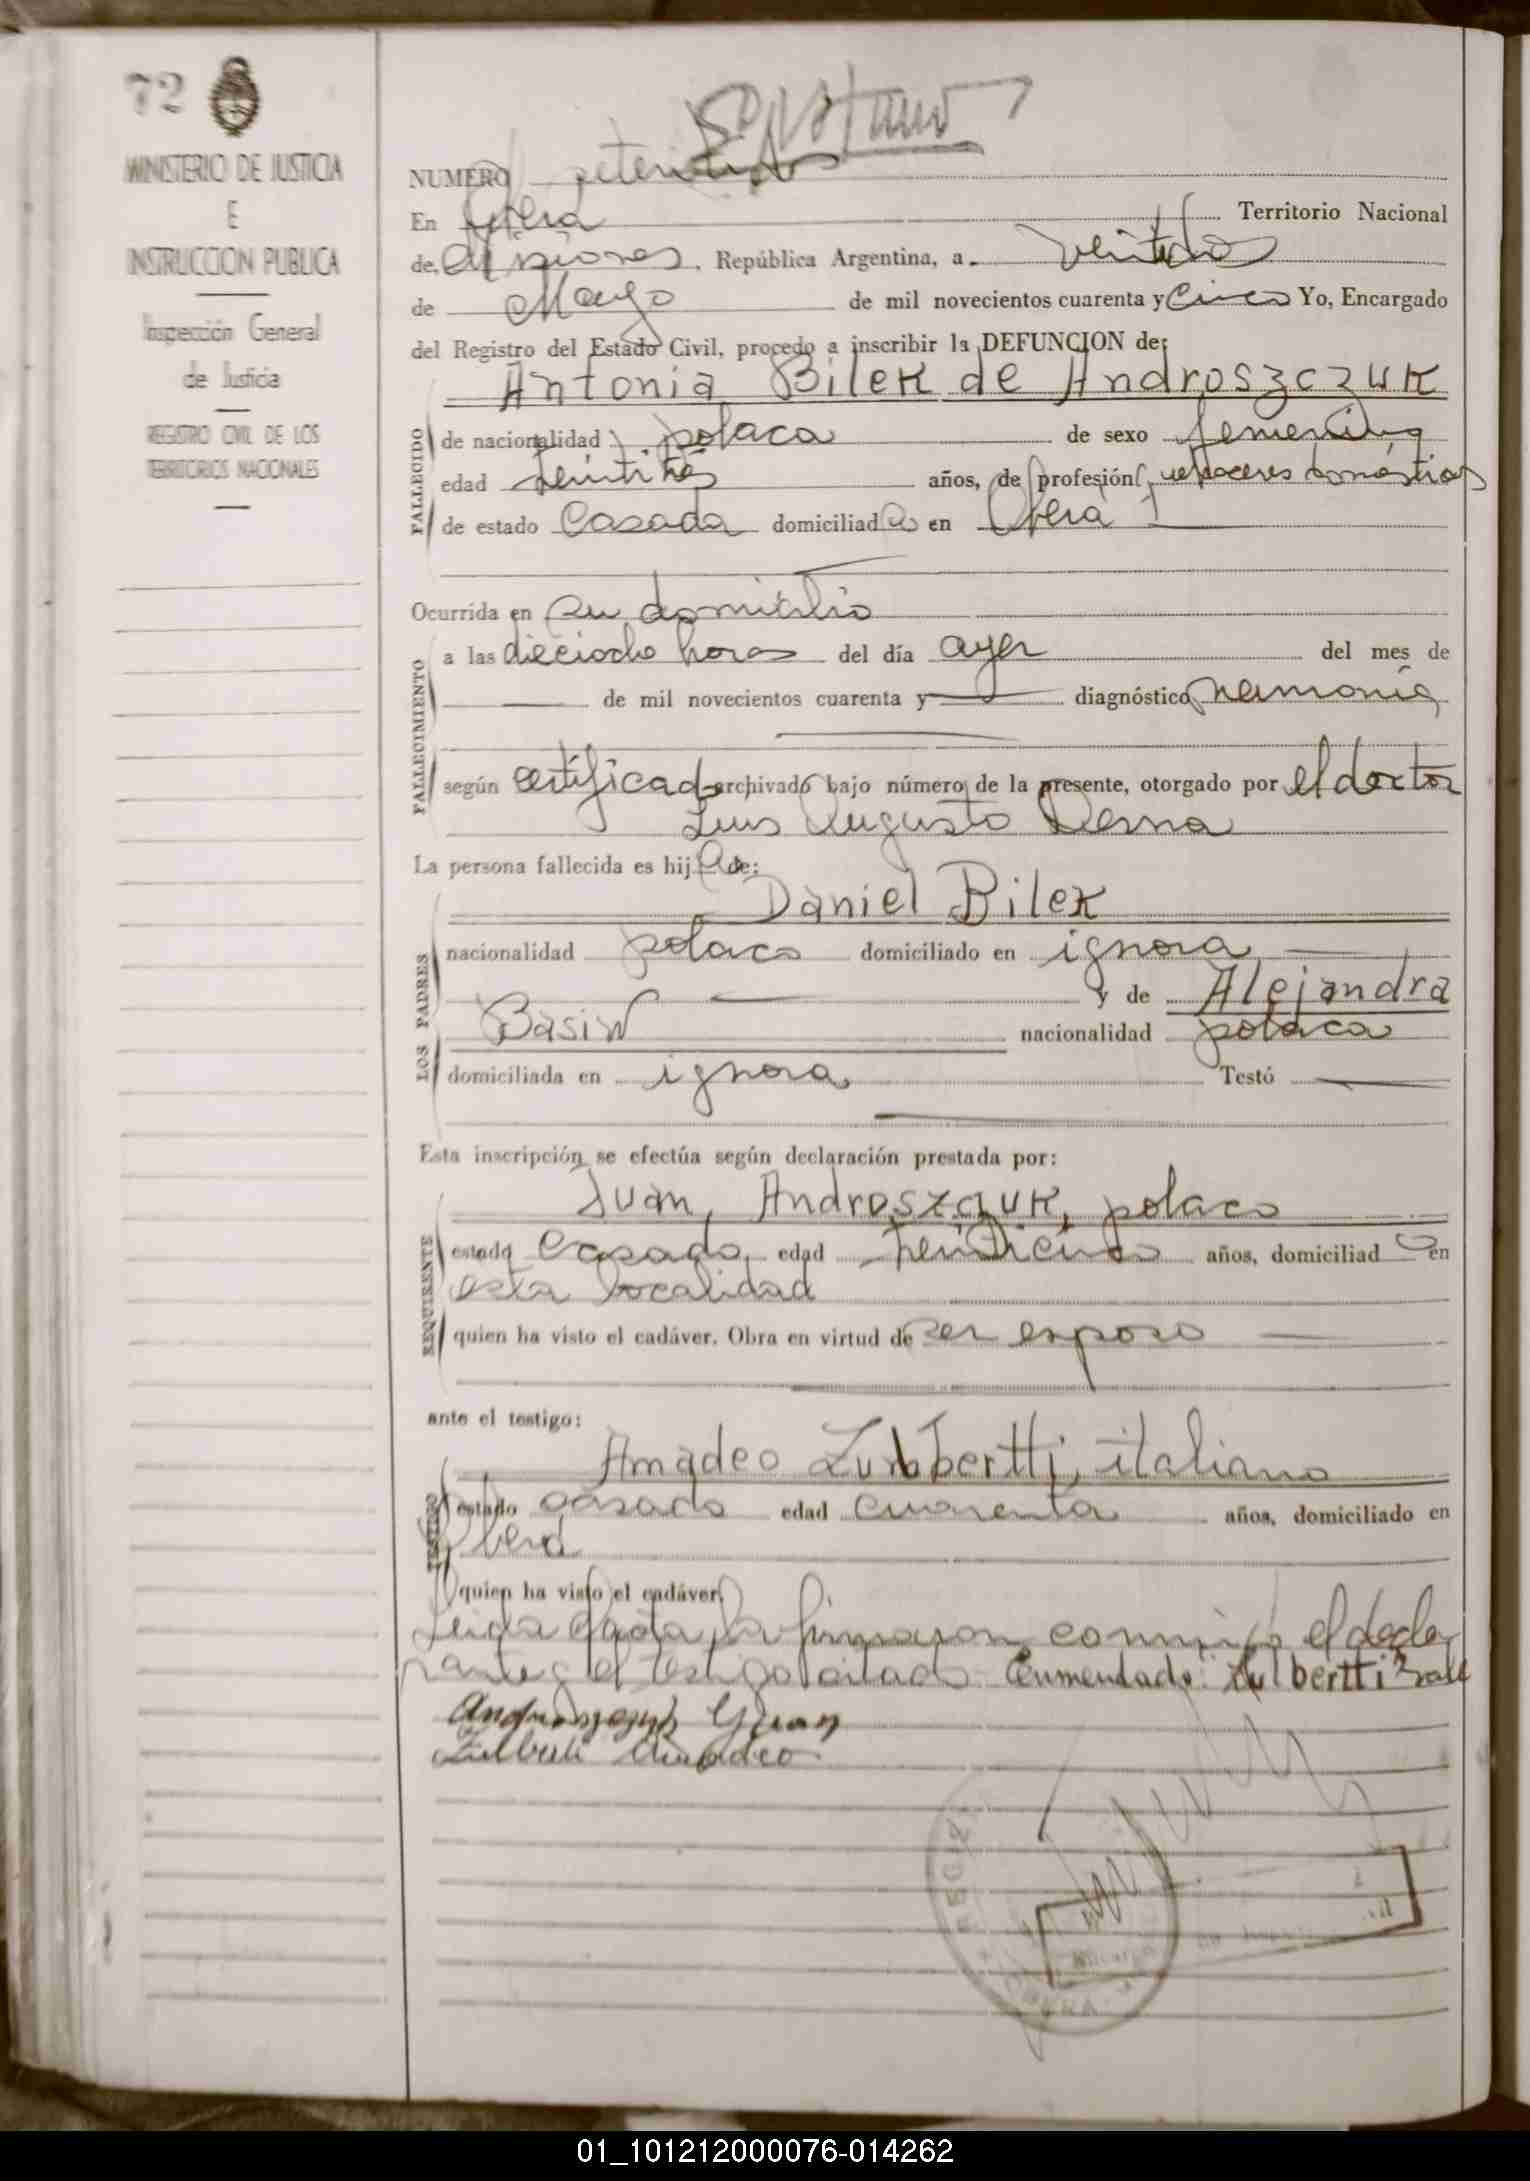 72
MINISTERIO DE JUSTICIA
E
INSTRUCCION PUBLICA
Inspección General
de Justicia
REGISTRO CIVIL DE LOS
TERRITORIOS NACIONALES
NUMERO
En Oberá Territorio Nacional
de Misiones, República Argentina, a veintidos
de Mayo de mil novecientos cuarenta y cinco Yo, Encargado
del Registro del Estado Civil, procedo a inscribir la DEFUNCION de:
Antonia Bilek de Androszczuk
FALLECIDO
de nacionalidad polaca de sexo femenino
edad años, de profesión quehaceres domésticos
de estado casada domiciliada en Oberá
Ocurrida en su domicilio
FALLECIMIENTO
a las dieciocho horas del día ayer del mes de
de mil novecientos cuarenta y diagnóstico neumonia
según certificado archivado bajo número de la presente, otorgado por el doctor
Luis Augusto Derna
La persona fallecida es hija de:
LOS PADRES
Daniel Bilek
nacionalidad polaco domiciliado en ignora
y de Alejandra
Basiw nacionalidad polaca
domiciliada en ignora Testó
Esta inscripción se efectúa según declaración prestada por:
REQUIRENTE
Juan, Androszczuk, polaco
estado casado edad treinticinco años, domiciliado en
esta localidad
quien ha visto el cadáver. Obra en virtud de ser esposo
ante el testigo:
TESTIGO
Amadeo Zulbertti, italiano
estado casado edad cuarenta años, domiciliado en
Oberá
quien ha visto el cadáver
Leida el acta, la firmaron conmigo el decla
rante y el testigo citado. Enmendado: Zulbertti Vale
Androszczuk Juan
Zulberti Amadeo
REGIST
OBERA
01_101212000076-014262